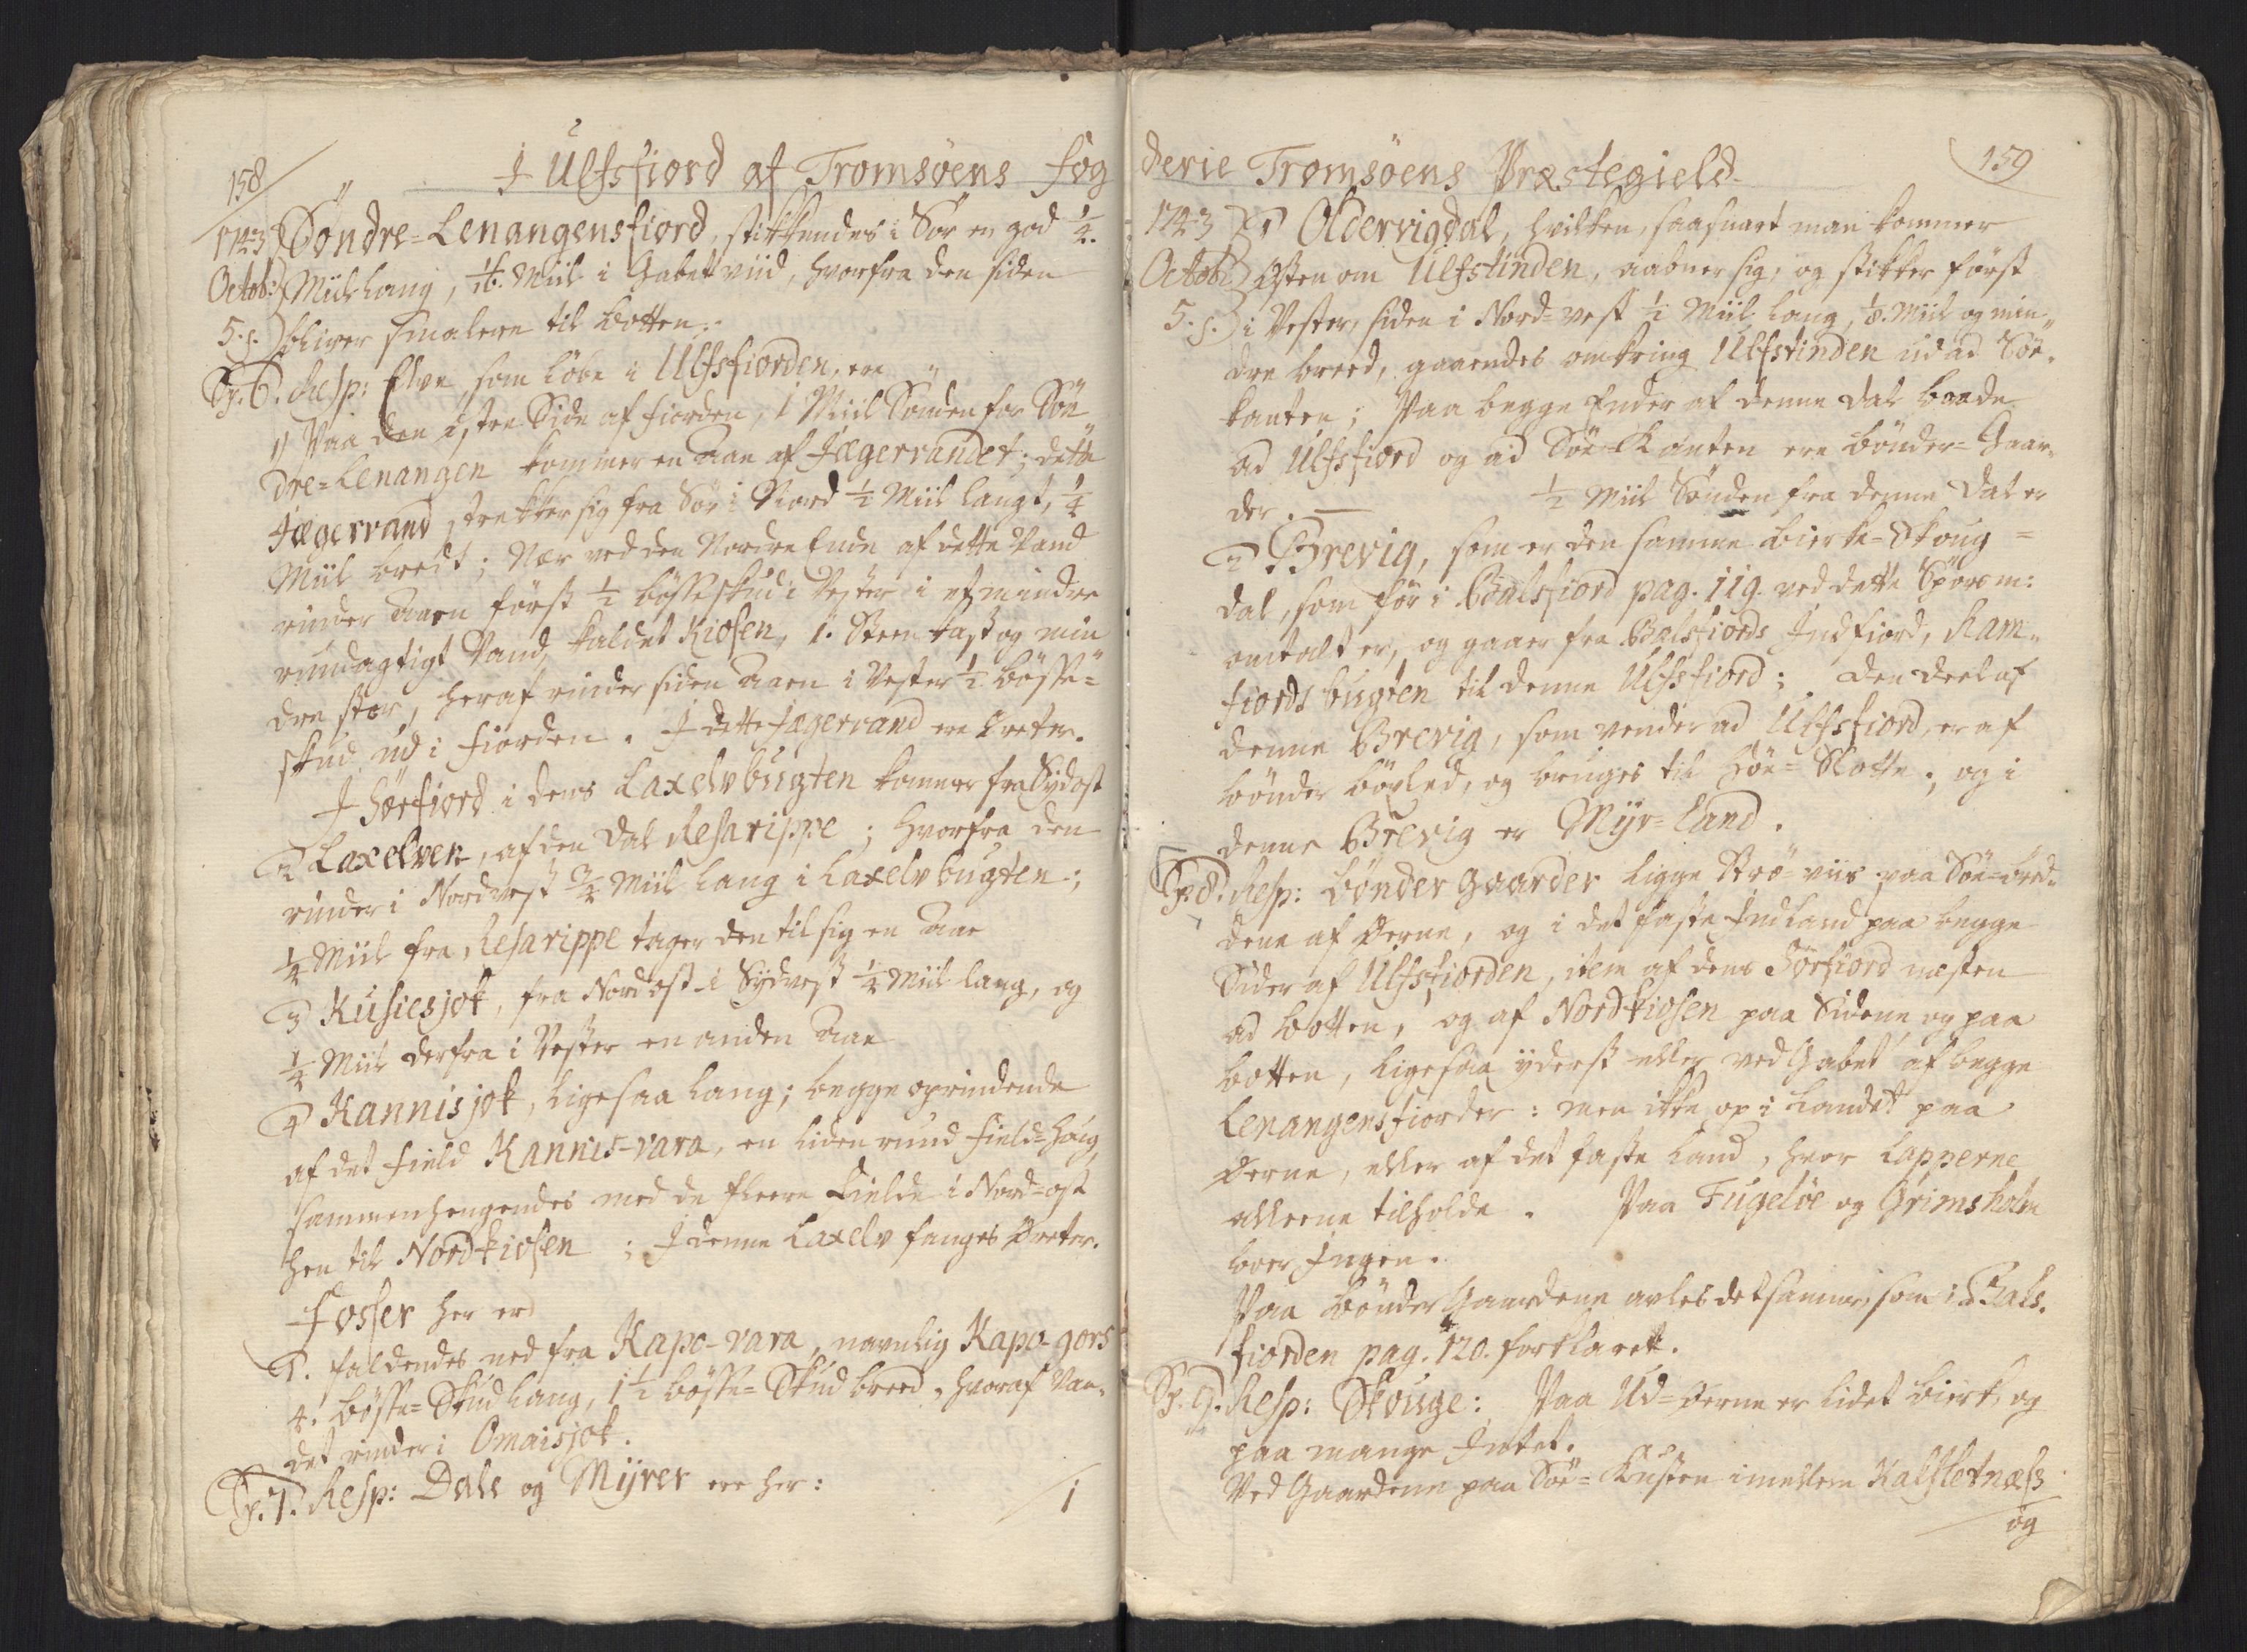 158
I Ulfsfiord af Tromsöens Fog
1743 Söndre=Lenangensfiord, stikkendes i Sör en god 1/4.
Octob: Miil lang, 1/16. Miil i Gabet viid, hvorfra den siden
5. s. bliver smalere til Botten.
Sp. 6. Resp: Elve, som löbe i Ulfsfiorden, ere
1) Paa den östre Side af Fiorden, 1 Miil Sönden for Sön
dre=Lenangen kommer en Aae af Jægervandet; dette
Jægervand strekker sig fra Sör i Nord 1/2 Miil langt, 1/4
Miil bredt; Nær ved den Nordre Ende af dette Vand
rinder Aaen först 1/2 bösseskud i Vester i et mindre
rundagtigt Vand, kaldet Kiosen, 1. Steen kast og min
dre stor, heraf rinder siden Aaen i Vester 1/2 bösse=
skud ud i Fiorden. I dette Jægervand ere Öreter.
I Sörfiord i dens Laxelvbugten kommer fra Sydost
2 Laxelven, af den Dal Resarippe; hvorfra den
rinder i Nordvest 3/4 Miil lang i Laxelvbugten;
1/4 Miil fra Resarippe tager den til sig en Aae
3 Kusiesjok, fra Nordost i Sydvest 1/4 Miil lang, og
1/4 Miil derfra i Vester en anden Aae
4 Kannisjok, ligesaa lang; begge oprindende
af det Field Kannis-vara, en liden rund Field=Houg,
sammenhengendes med de fleere Fielde i Nord=ost
hen til Nordkiosen; I denne Laxelv fanges Öreter.
Fosser her er
1. faldendes ned fra Kapo-vara, navnlig Kapo-gors
4. bösse=Skud lang, 1 1/2 bösse=Skud breed, hvoraf Van,
det rinder i Omaisjok.
Sp. 7. Resp: Dale og Myrer ere her:
1
derie Tromsöens Præstegield
159
1743 1 Oldervigdal, hvilken, saasnart man kommer
Octob: Östen om Ulfstinden, aabner sig, og stikker först
5. s. i Vester, siden i Nord=vest 1/2 Miil lang, 1/8. Miil og min,
dre breed, gaaendes omkring Ulfstinden ud ad Söe,
kanten; Paa begge Ender af denne Dal baade
ad Ulfsfiord og ad Söe=Kanten ere bönder=Gaar,
der. — 1/2 Miil Sönden fra denne Dal er
2 Brevig, som er den samme Birke=Skoug=
dal, som för i Balsfiord pag. 119. ved dette Spörsm:
omtalt er, og gaaer fra Balsfiords Indfiord, Ram,
fiords bugten til denne Ulfsfiord; Den Deel af
denne Brevig, som vender ad Ulfsfiord, er af
bönder böxled, og bruges til Höe=Slotte; og i
denne Brevig er Myr=Land.
Sp. 8. Resp: Bönder Gaarder ligge Strö=viis paa Söe=bred,
dene af Öerne, og i det faste Indland paa begge
Sider af Ulfsfiorden, item af dens Sörfiord næsten
ad botten, og af Nordkiosen paa Siderne og paa
botten, ligesaa yderst eller ved Gabet af begge
Lenangensfiorder: men ikke op i Landet paa
Öerne, eller af det faste Land, hvor Lapperne
alleene tilholde. Paa Fugelöe og Grimsholm
boer Ingen.
Paa Bönder Gaardene avles det samme, som i Bals,
fiorden pag. 120. forklaret.
Sp. 9. Resp: Skouge: Paa Ud=Öerne er lidet Birk, og
paa mange Intet.
Ved Gaardene paa Söe=Kusten imellem Kalsletnæss
og